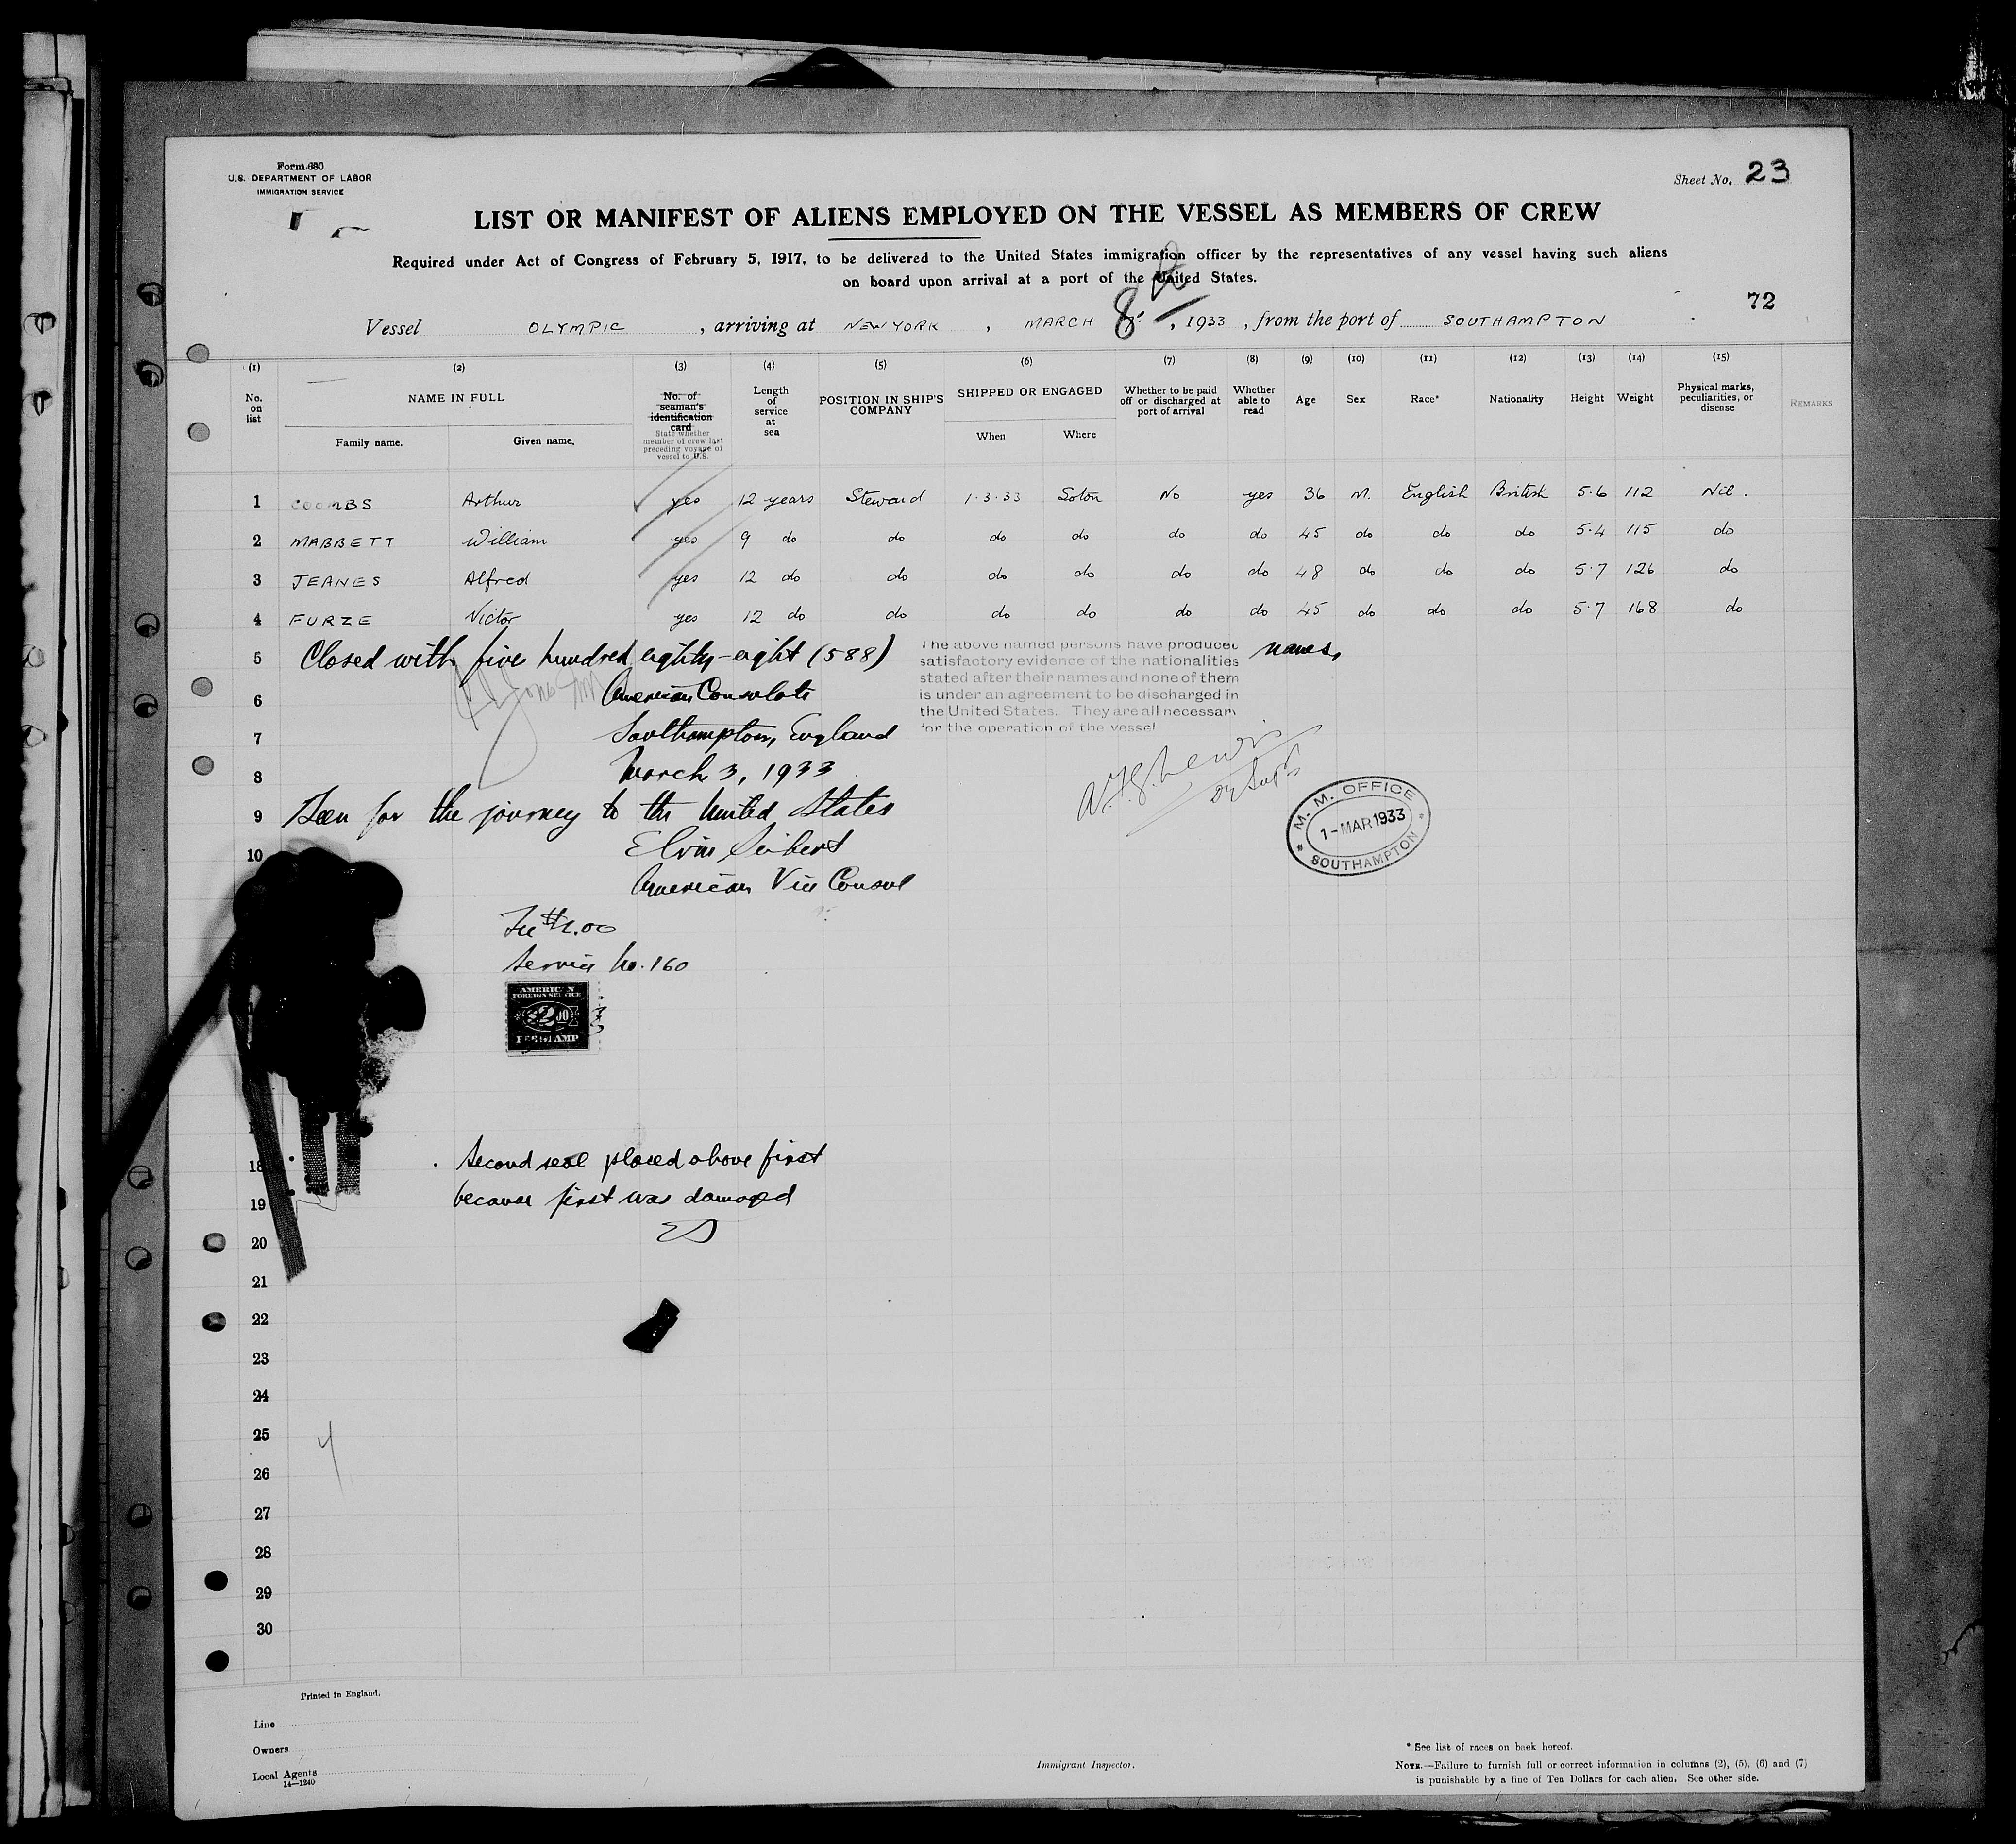 Form 680
U.S. DEPARTMENT OF LABOR
IMMIGRATION SERVICE
Sheet No. 23
LIST OR MANIFEST OF ALIENS EMPLOYED ON THE VESSEL AS MEMBERS OF CREW
Required under Act of Congress of February 5, 1917, to be delivered to the United States immigration officer by the representatives of any vessel having such aliens
on board upon arrival at a port of the United States.
72
Vessel OLYMPIC , arriving at NEW YORK , MARCH 8 , 1933 , from the port of SOUTHAMPTON
(1) (2) (3) (4) (5) (6) (7) (8) (9) (10) (11) (12) (13) (14) (15)
No. on list
NAME IN FULL
Family name. Given name.
No. of seaman's identification card
State whether member of crew last preceding voyage of vessel to U.S.
Length of service at sea
POSITION IN SHIP'S COMPANY
SHIPPED OR ENGAGED
When Where
Whether to be paid off or discharged at port of arrival
Whether able to read
Age
Sex
Race*
Nationality
Height
Weight
Physical marks, peculiarities, or disease
REMARKS
1 COOMBS Arthur yes 12 years Steward 1.3.33 Soton No yes 36 M. English British 5.6 112 Nil.
2 MABBETT William yes 9 do do do do do do 45 do do do 5.4 115 do
3 JEANES Alfred yes 12 do do do do do do 48 do do do 5.7 126 do
4 FURZE Victor yes 12 do do do do do do 45 do do do 5.7 168 do
5 Closed with five hundred eighty-eight (588) names,
The above named persons have produced
satisfactory evidence of the nationalities
stated after their names and none of them
is under an agreement to be discharged in
the United States. They are all necessary
for the operation of the vessel
6 American Consulate
7 Southampton, England
8 March 3, 1933
9 Seen for the journey to the United States
10 Elvin Seibert
American Vice Consul
M. M. OFFICE
1-MAR 1933
SOUTHAMPTON
Fee $2.00
Service No. 160
AMERICAN
FOREIGN SERVICE
$2.00
FEE STAMP
18 Second seal placed above first
19 because first was damaged
ES
20
21
22
23
24
25
26
27
28
29
30
4
Printed in England.
Line
Owners
Local Agents
14—1240
Immigrant Inspector.
* See list of races on back hereof.
NOTE.—Failure to furnish full or correct information in columns (2), (5), (6) and (7)
is punishable by a fine of Ten Dollars for each alien. See other side.